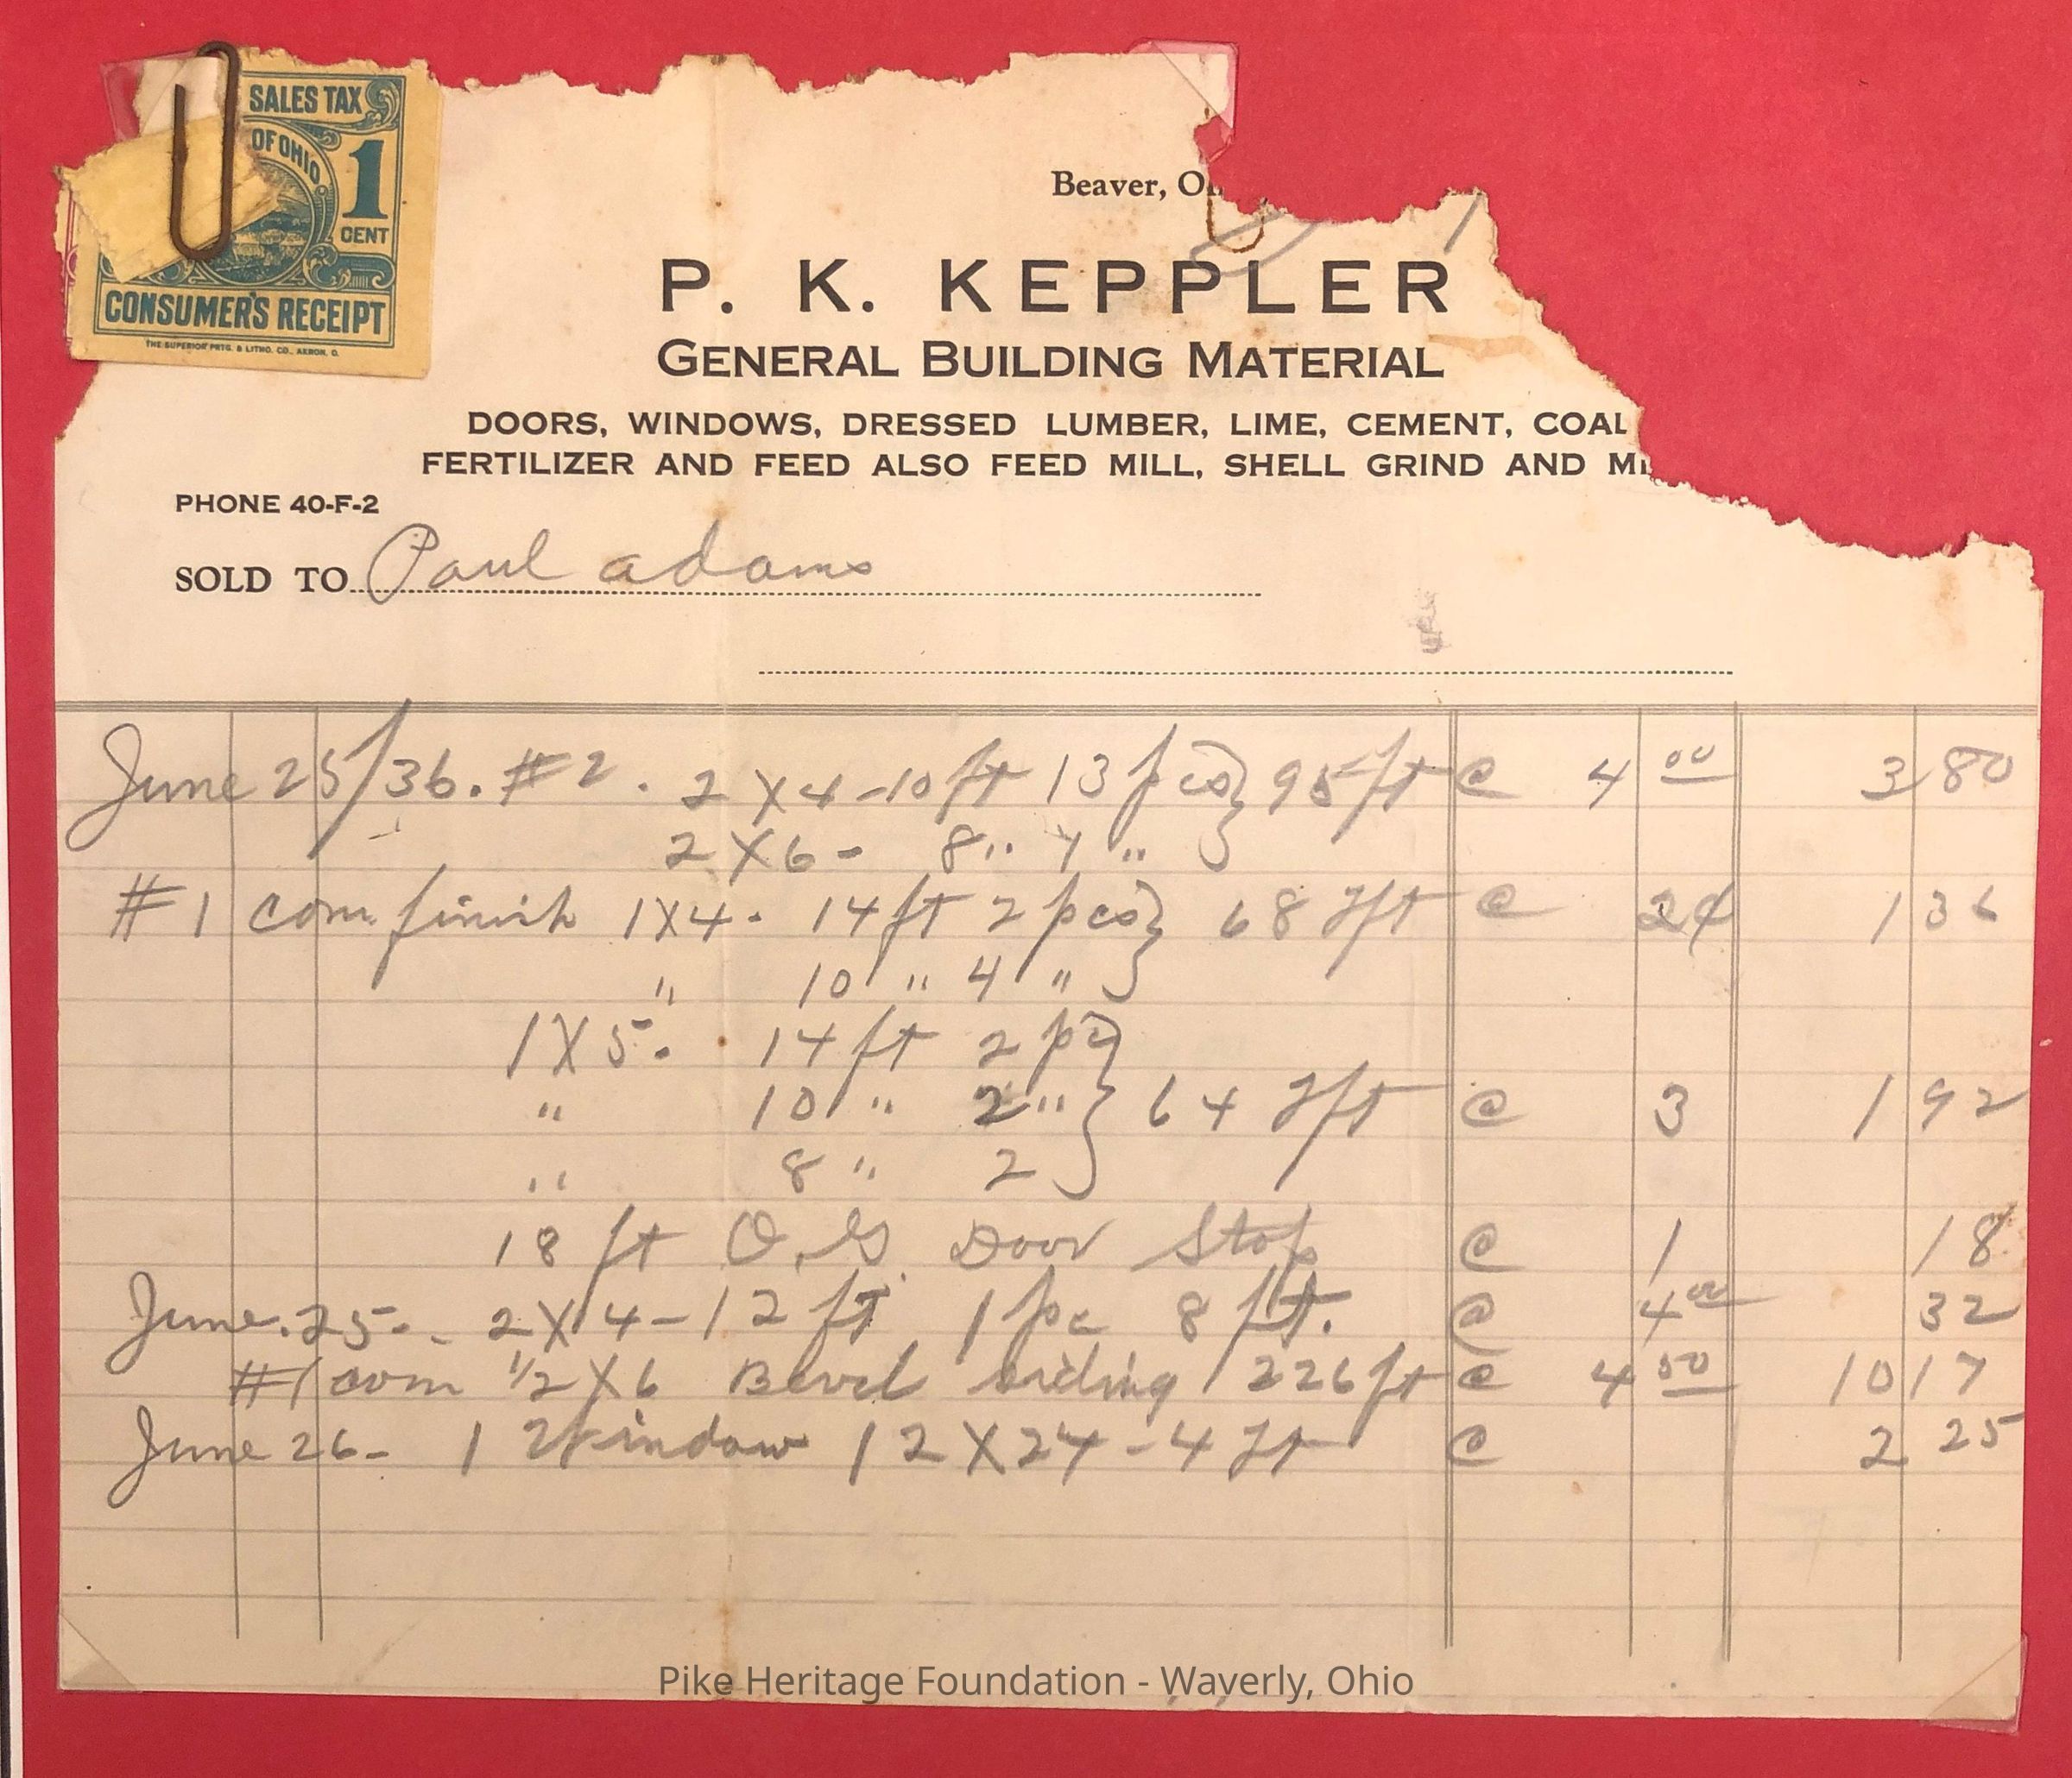 SALES TAX
OF OHIO
1
CENT
CONSUMER'S RECEIPT
THE SUPERIOR PRTG. & LITHO. CO., AKRON, O.
Beaver,
P. K. KEPPLER
GENERAL BUILDING MATERIAL
DOORS, WINDOWS, DRESSED LUMBER, LIME, CEMENT, COAL
FERTILIZER AND FEED ALSO FEED MILL, SHELL GRIND AND
PHONE 40-F-2
SOLD TO Paul adams
June 25/36. #2. 2X4-10ft 13 pcs } 95 ft @ 4 00 3 80
2X6- 8 " "
#1 com. finish 1X4. 14 ft 2 pcs } 68 Jft @ 2¢ 1 36
" 10 " 4 "
1X5. 14 ft 2 pc
" 10 " 2 " } 64 Jft @ 3 1 92
" 8 " 2
18 ft O.G. Door Stop @ 1 18
June. 25- 2X4-12 ft 1 pc 8 ft. @ 4 00 32
#1 com 1/2 X 6 Bevel siding 226 ft @ 4 50 10 17
June 26- 1 Window 12X24-4 @ 2 25
Pike Heritage Foundation - Waverly, Ohio